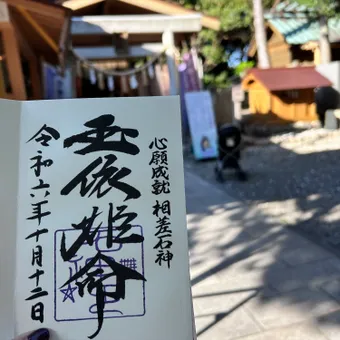 心願成就 相差石神
玉依姫命
令和六年十月十二日